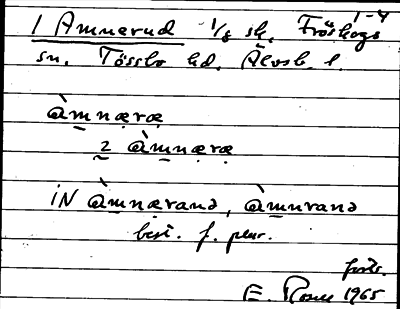 1-4
1 Amnerud 1/8 sk, Fröskogs
sn, Tössbo hd, Älvsb. l.
àmnæræ
2 àmnæræ
IN àmnæranə, àmnranə
best. f. plur.
forts.
E. Rosell 1965